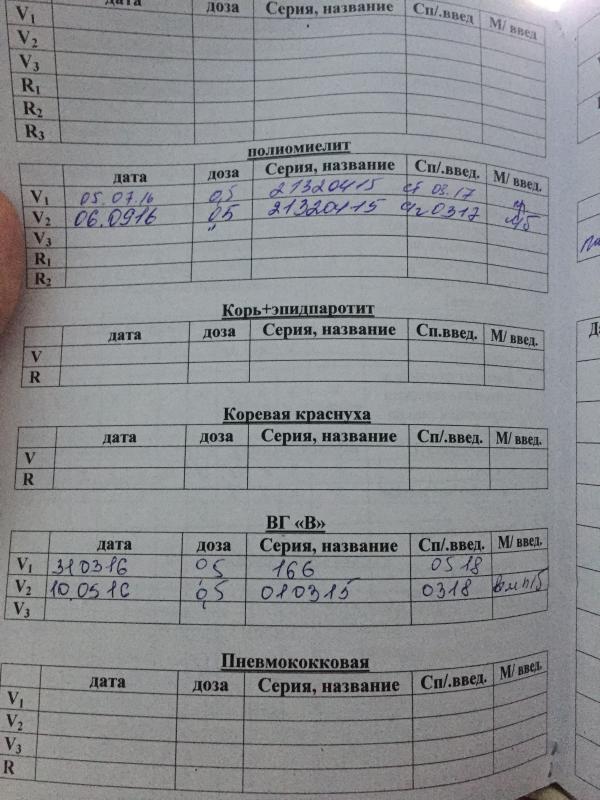 дата доза Серия, название Сп/.введ М/ введ
V1
V2
V3
R1
R2
R3
полиомиелит
дата доза Серия, название Сп/.введ. М/ введ.
V1 05.07.16 0,5 21320415 03.17
V2 06.0916 0,5 21320415 0317
V3
R1
R2
Корь+эпидпаротит
дата доза Серия, название Сп.введ. М/ введ.
V
R
Коревая краснуха
дата доза Серия, название Сп/.введ. М/ введ.
V
R
ВГ «В»
дата доза Серия, название Сп/.введ. М/ введ.
V1 310316 05 166 0518
V2 10.0516 0,5 010315 0318
V3
Пневмококковая
дата доза Серия, название Сп/.введ. М/ введ.
V1
V2
V3
R